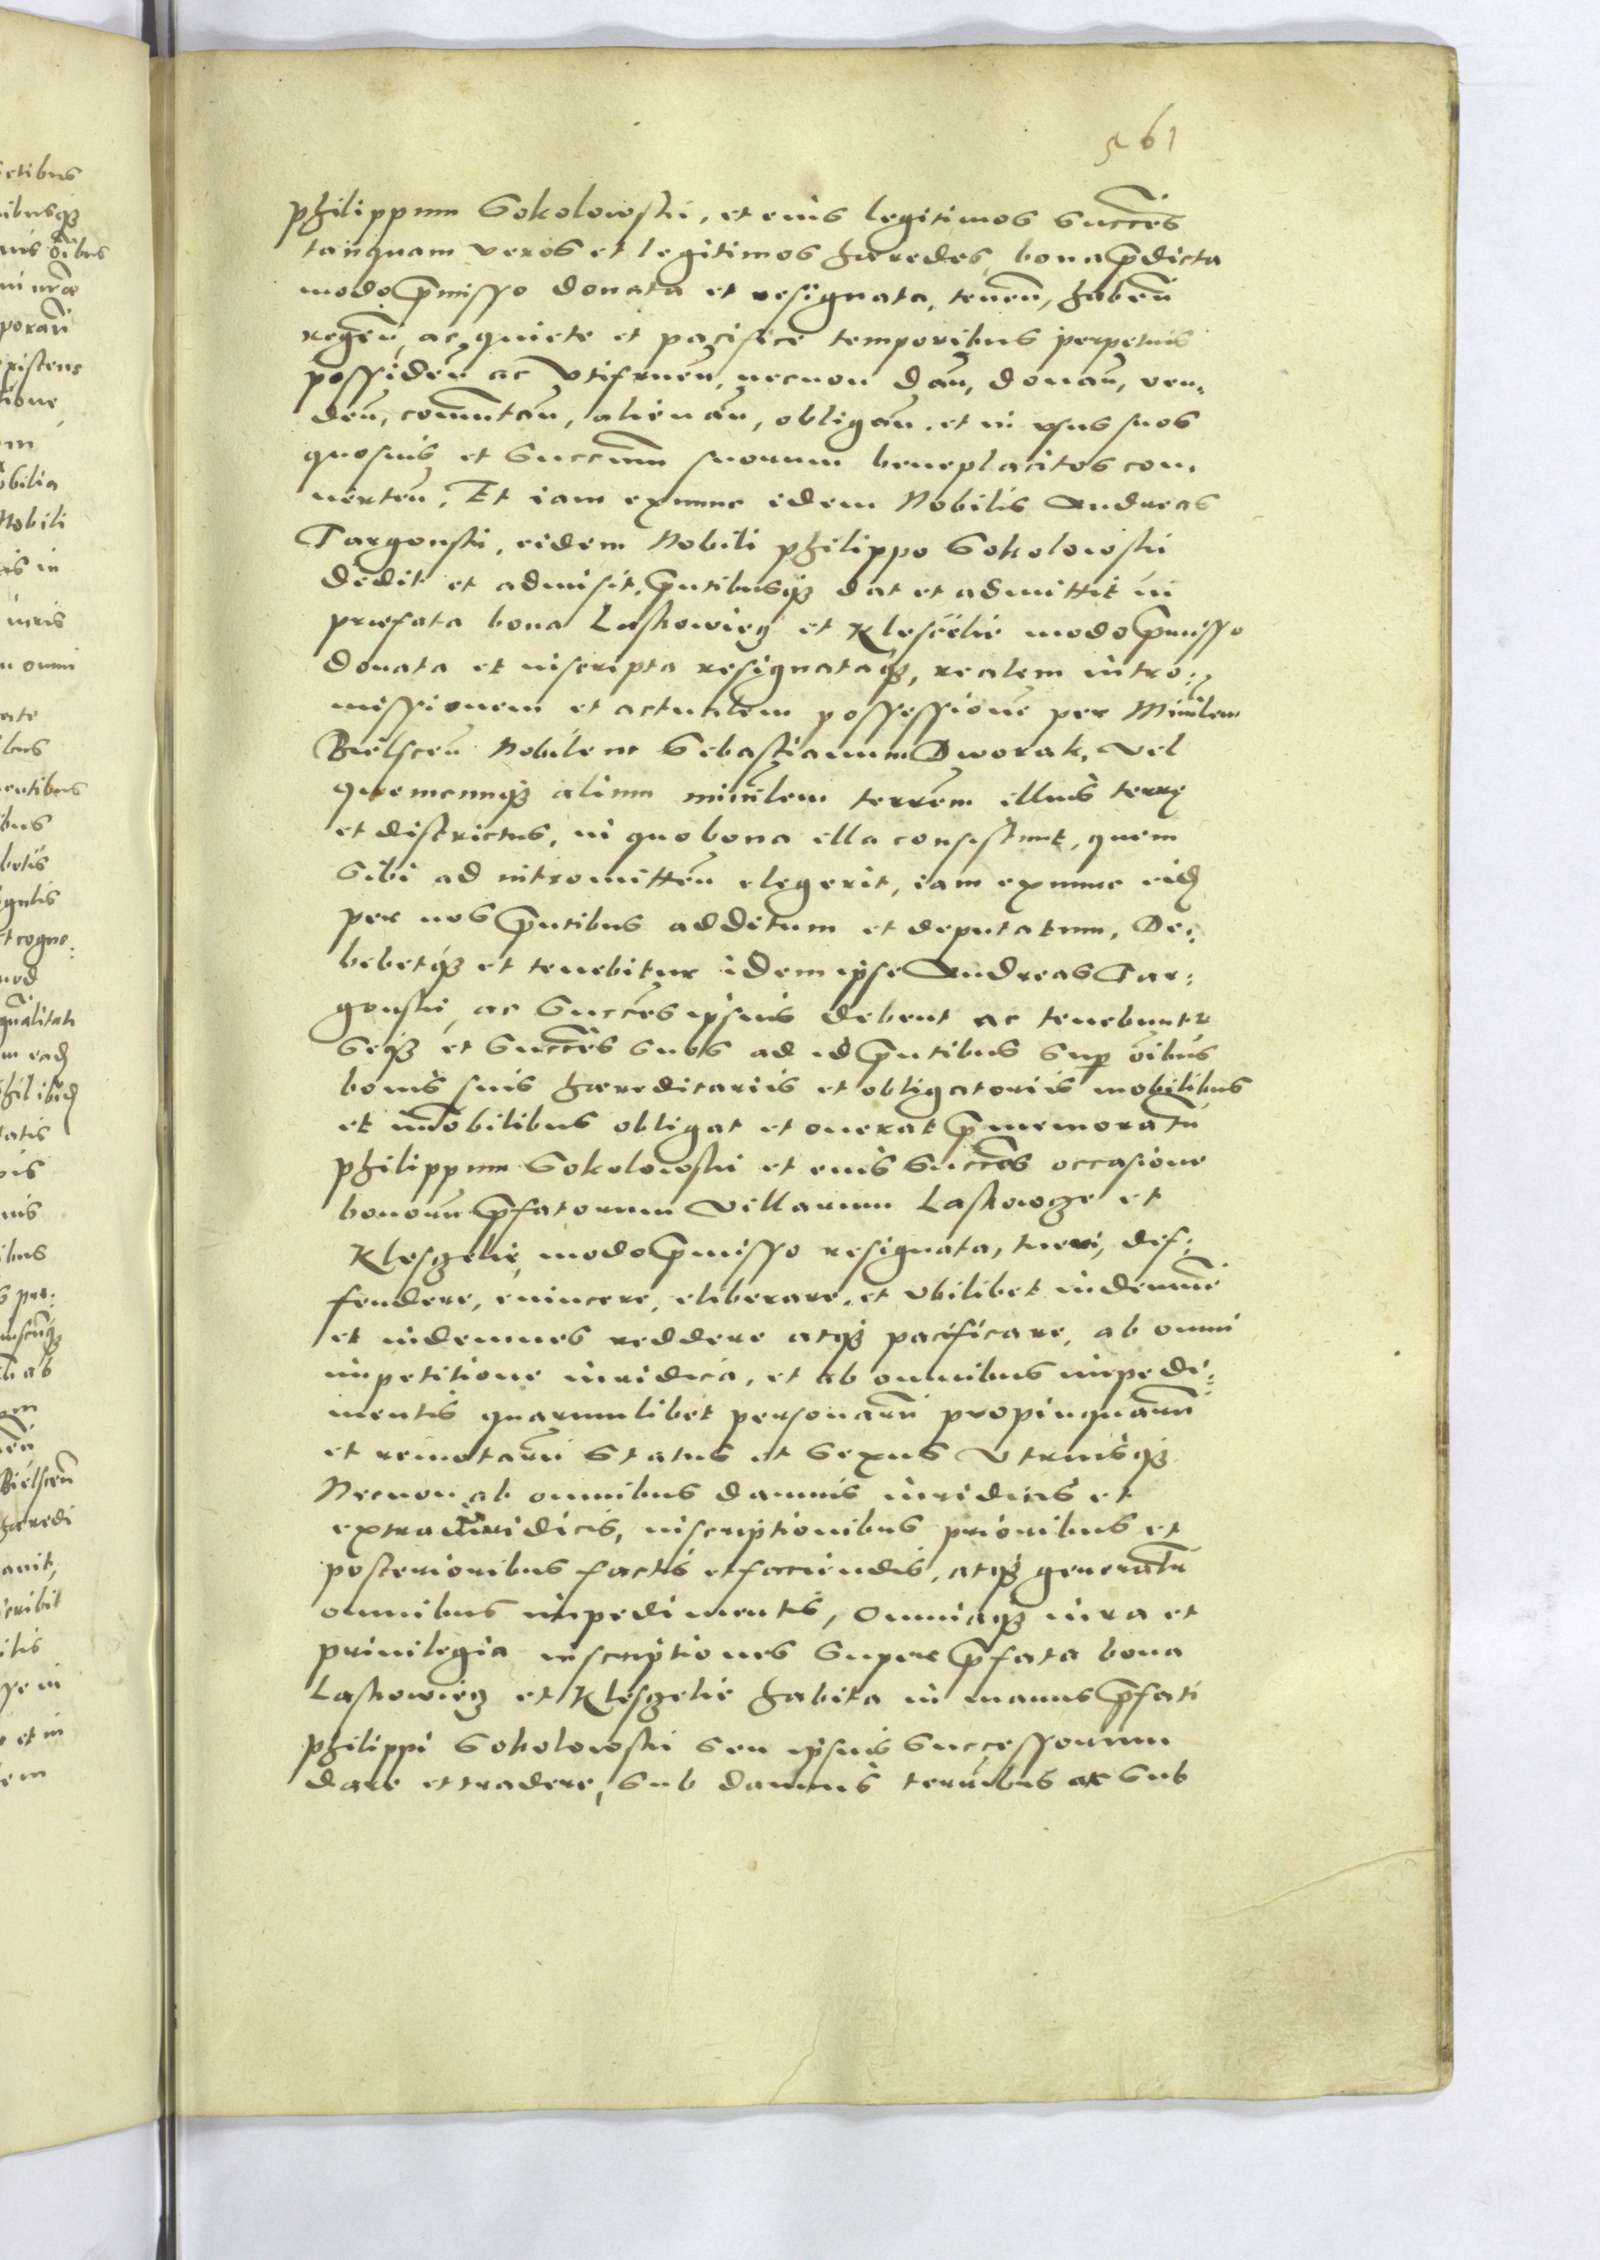 561
philippum Sokolowski, et eius legitimos Succes
tanquam veros et legitimos hæredes, bona p̃dicta
modo p̃misso donata et resignata, teneñ, habeñ
regeñ, ac quiete et pacifice temporibus perpetuis
possideñ ac Utifrueñ, necnon dañ, donañ, ven„
deñ, com̃utañ, alienañ, obligañ. et in vsus suos
quosuis et Succ̃um suorum beneplacitos con„
uerteñ. Et iam exnunc idem Nobilis Andreas
Targonski, eidem Nobili philippo Sokolowski
dedit et admisit, p̃ntibusq̃ dat et admittit in
præfata bona Laskowiecz et Klesczelie modo p̃misso
donata et inscripta resignataq̃, realem intro„
missionem et actualem possessionẽ per Minĩlem
Bielsceñ Nobilem Sebastianum Dworak, vel
quemcunq̃ alium minĩlem terreñ illius terrę
et districtus, in quo bona illa consistunt, quem
Sibi ad intromitteñ elegerit, iam exnunc eid̃
per nos p̃ntibus additum et deputatum, De„
bebetq̃ et tenebitur idem ipse Andreas Tar„
gonski, ac Succes̃ ipsius debent ac tenebuntr
Seq̃ et Succes̃ suos ad id p̃ntibus Sup̃ oĩbus
bonis suis hæreditariis et obligatoriis mobilibus
et im̃obilibus obligat et onerat p̃memoratũ
philippum Sokolowski et eius Succes̃ occasione
bonorũ p̃fatorum Villarum Laskowcze et
Klesczelie, modo p̃misso resignata, tueri, def„
fendere, euincere, eliberare, et Vbilibet indemnẽ
et indemnes reddere atq̃ pacificare, ab omni
impetitione iuridica, et ab omnibus impedi„
mentis quarumlibet personarũ propinquarũ
et remotarũ Status et Sexus Utriusq̃
Necnon ab omnibus damnis iuridicis et
extraiuridicis, inscriptionibus prioribus et
posterioribus factis et faciendis, atq̃ generatr̃
omnibus impedimentis, Omniaq̃ iura et
priuilegia inscriptiones Super p̃fata bona
Laskowiecz et Klesczelie habita in manus p̃fati
philippi Sokolowski Seu ipsius Successorum
dare et tradere, Sub damnis terrẽibus ac Sub